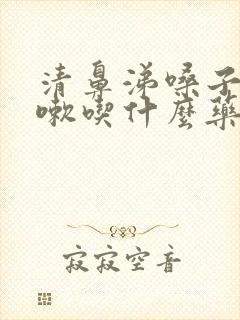 清鼻涕嗓子
嗽喫什麼藥
寂寂空音